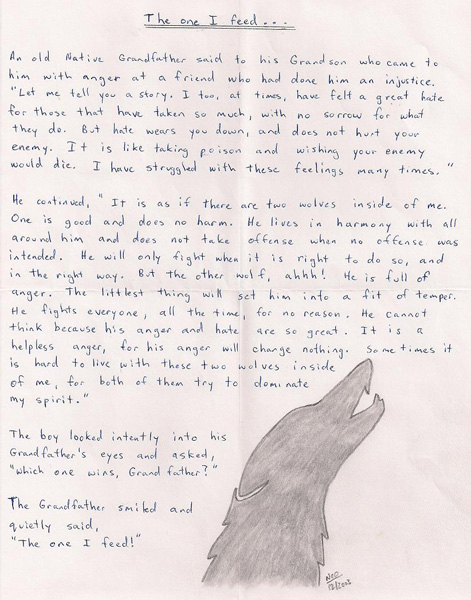 The one I feed...
An old Native Grandfather said to his Grandson who came to
him with anger at a friend who had done him an injustice.
"Let me tell you a story. I too, at times, have felt a great hate
for those that have taken so much, with no sorrow for what
they do. But hate wears you down, and does not hurt your
enemy. It is like taking poison and wishing your enemy
would die. I have struggled with these feelings many times."
He continued, "It is as if there are two wolves inside of me.
One is good and does no harm. He lives in harmony with all
around him and does not take offense when no offense was
intended. He will only fight when it is right to do so, and
in the right way. But the other wolf, ahhh! He is full of
anger. The littlest thing will set him into a fit of temper.
He fights everyone, all the time, for no reason. He cannot
think because his anger and hate are so great. It is a
helpless anger, for his anger will change nothing. Sometimes it
is hard to live with these two wolves inside
of me, for both of them try to dominate
my spirit."
The boy looked intently into his
Grandfather's eyes and asked,
"which one wins, Grandfather?"
The Grandfather smiled and
quietly said,
"The one I feed!"